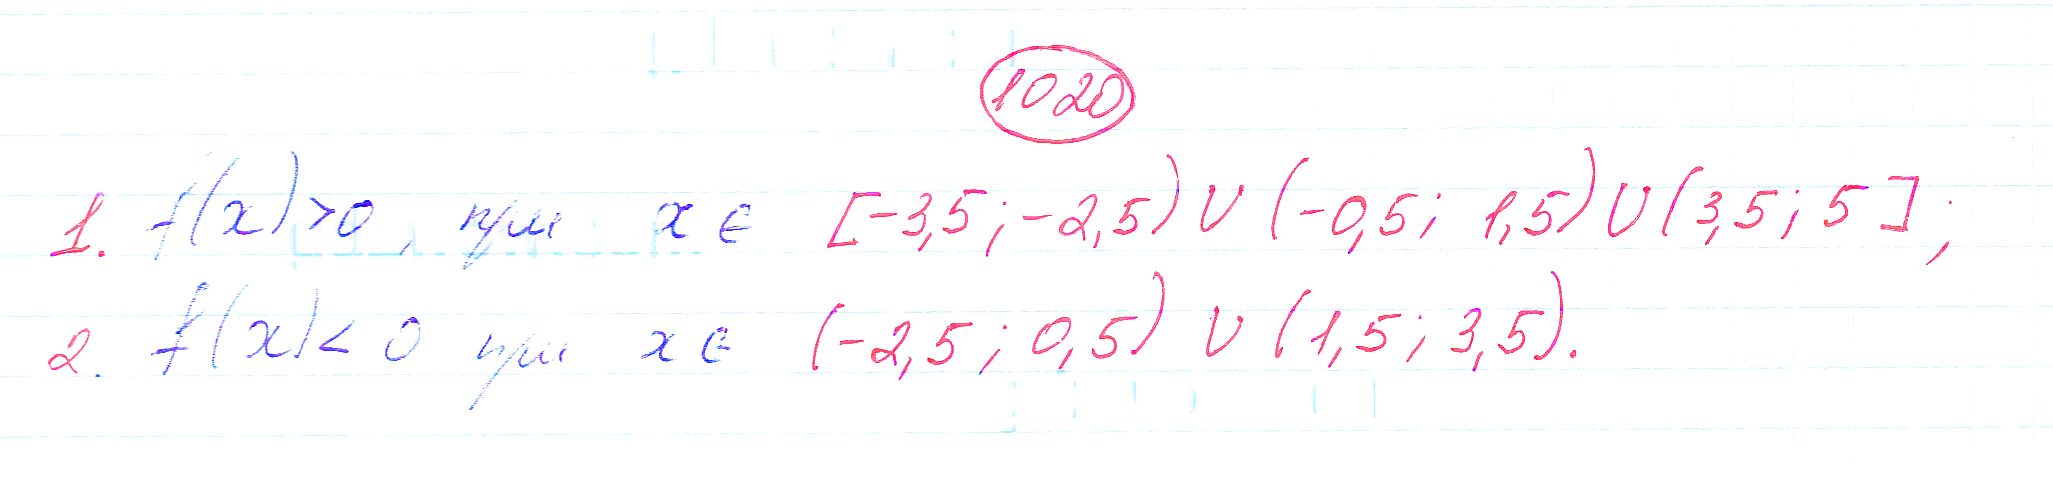 1020
1. f(x)>0, при x ∈ [-3,5; -2,5) ∪ (-0,5; 1,5) ∪ (3,5; 5];
2. f(x)<0 при x ∈ (-2,5; 0,5) ∪ (1,5; 3,5).